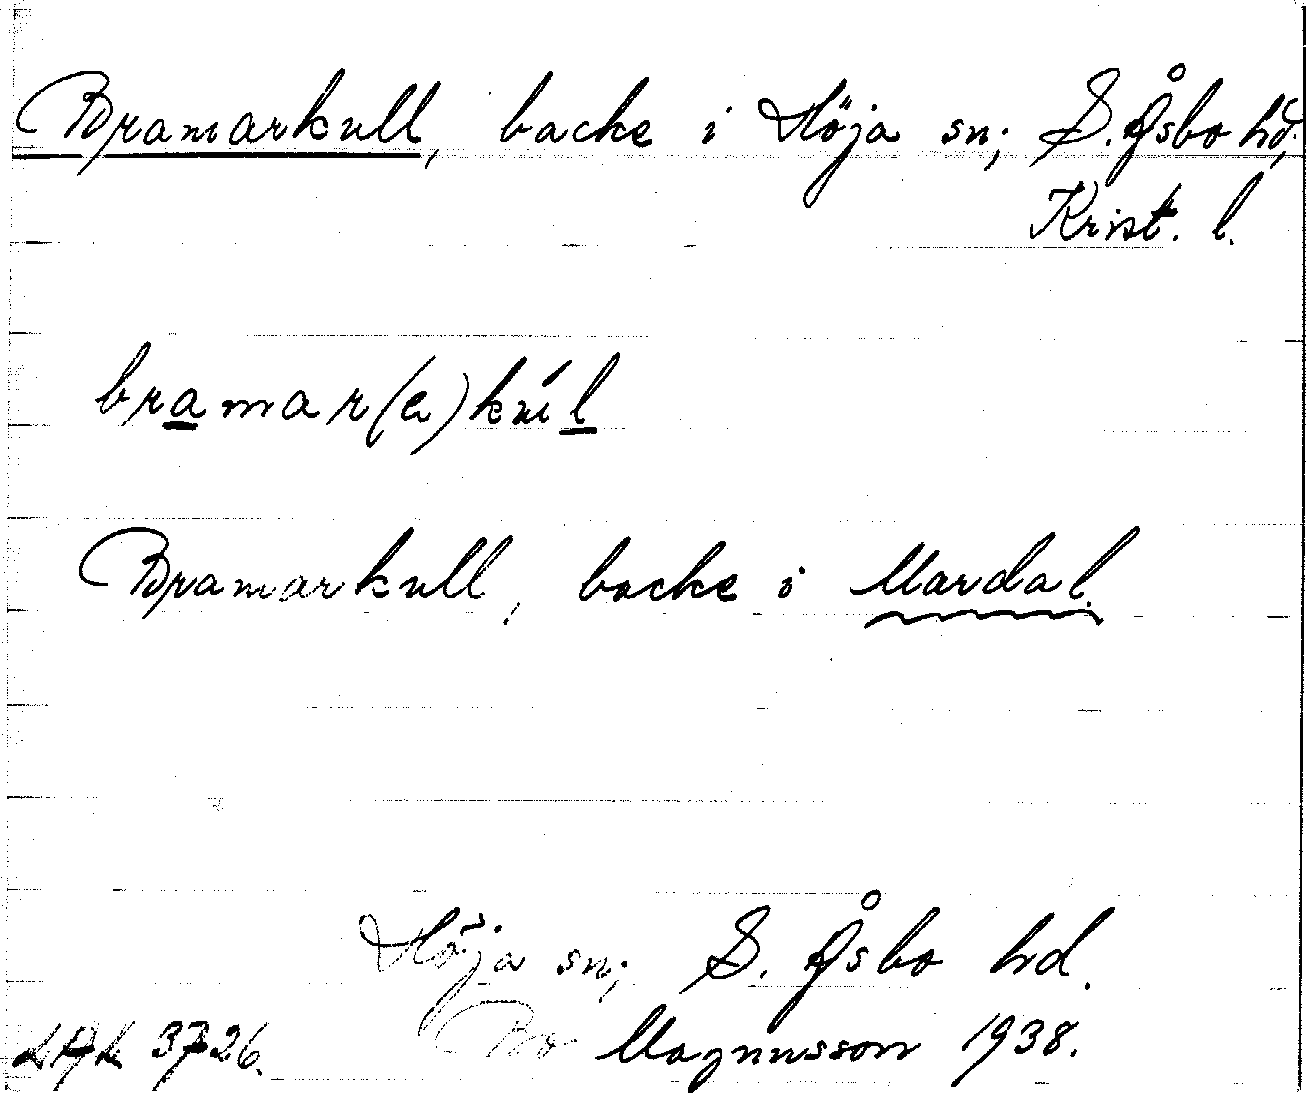 Bramarkull, backe i Höja sn; S. Åsbo hd;
Krist. l.
bramar(a)kúl
Bramarkull, backe i Mardal.
Höja sn; S. Åsbo hd.
LAL 3726. Bo Magnusson 1938.